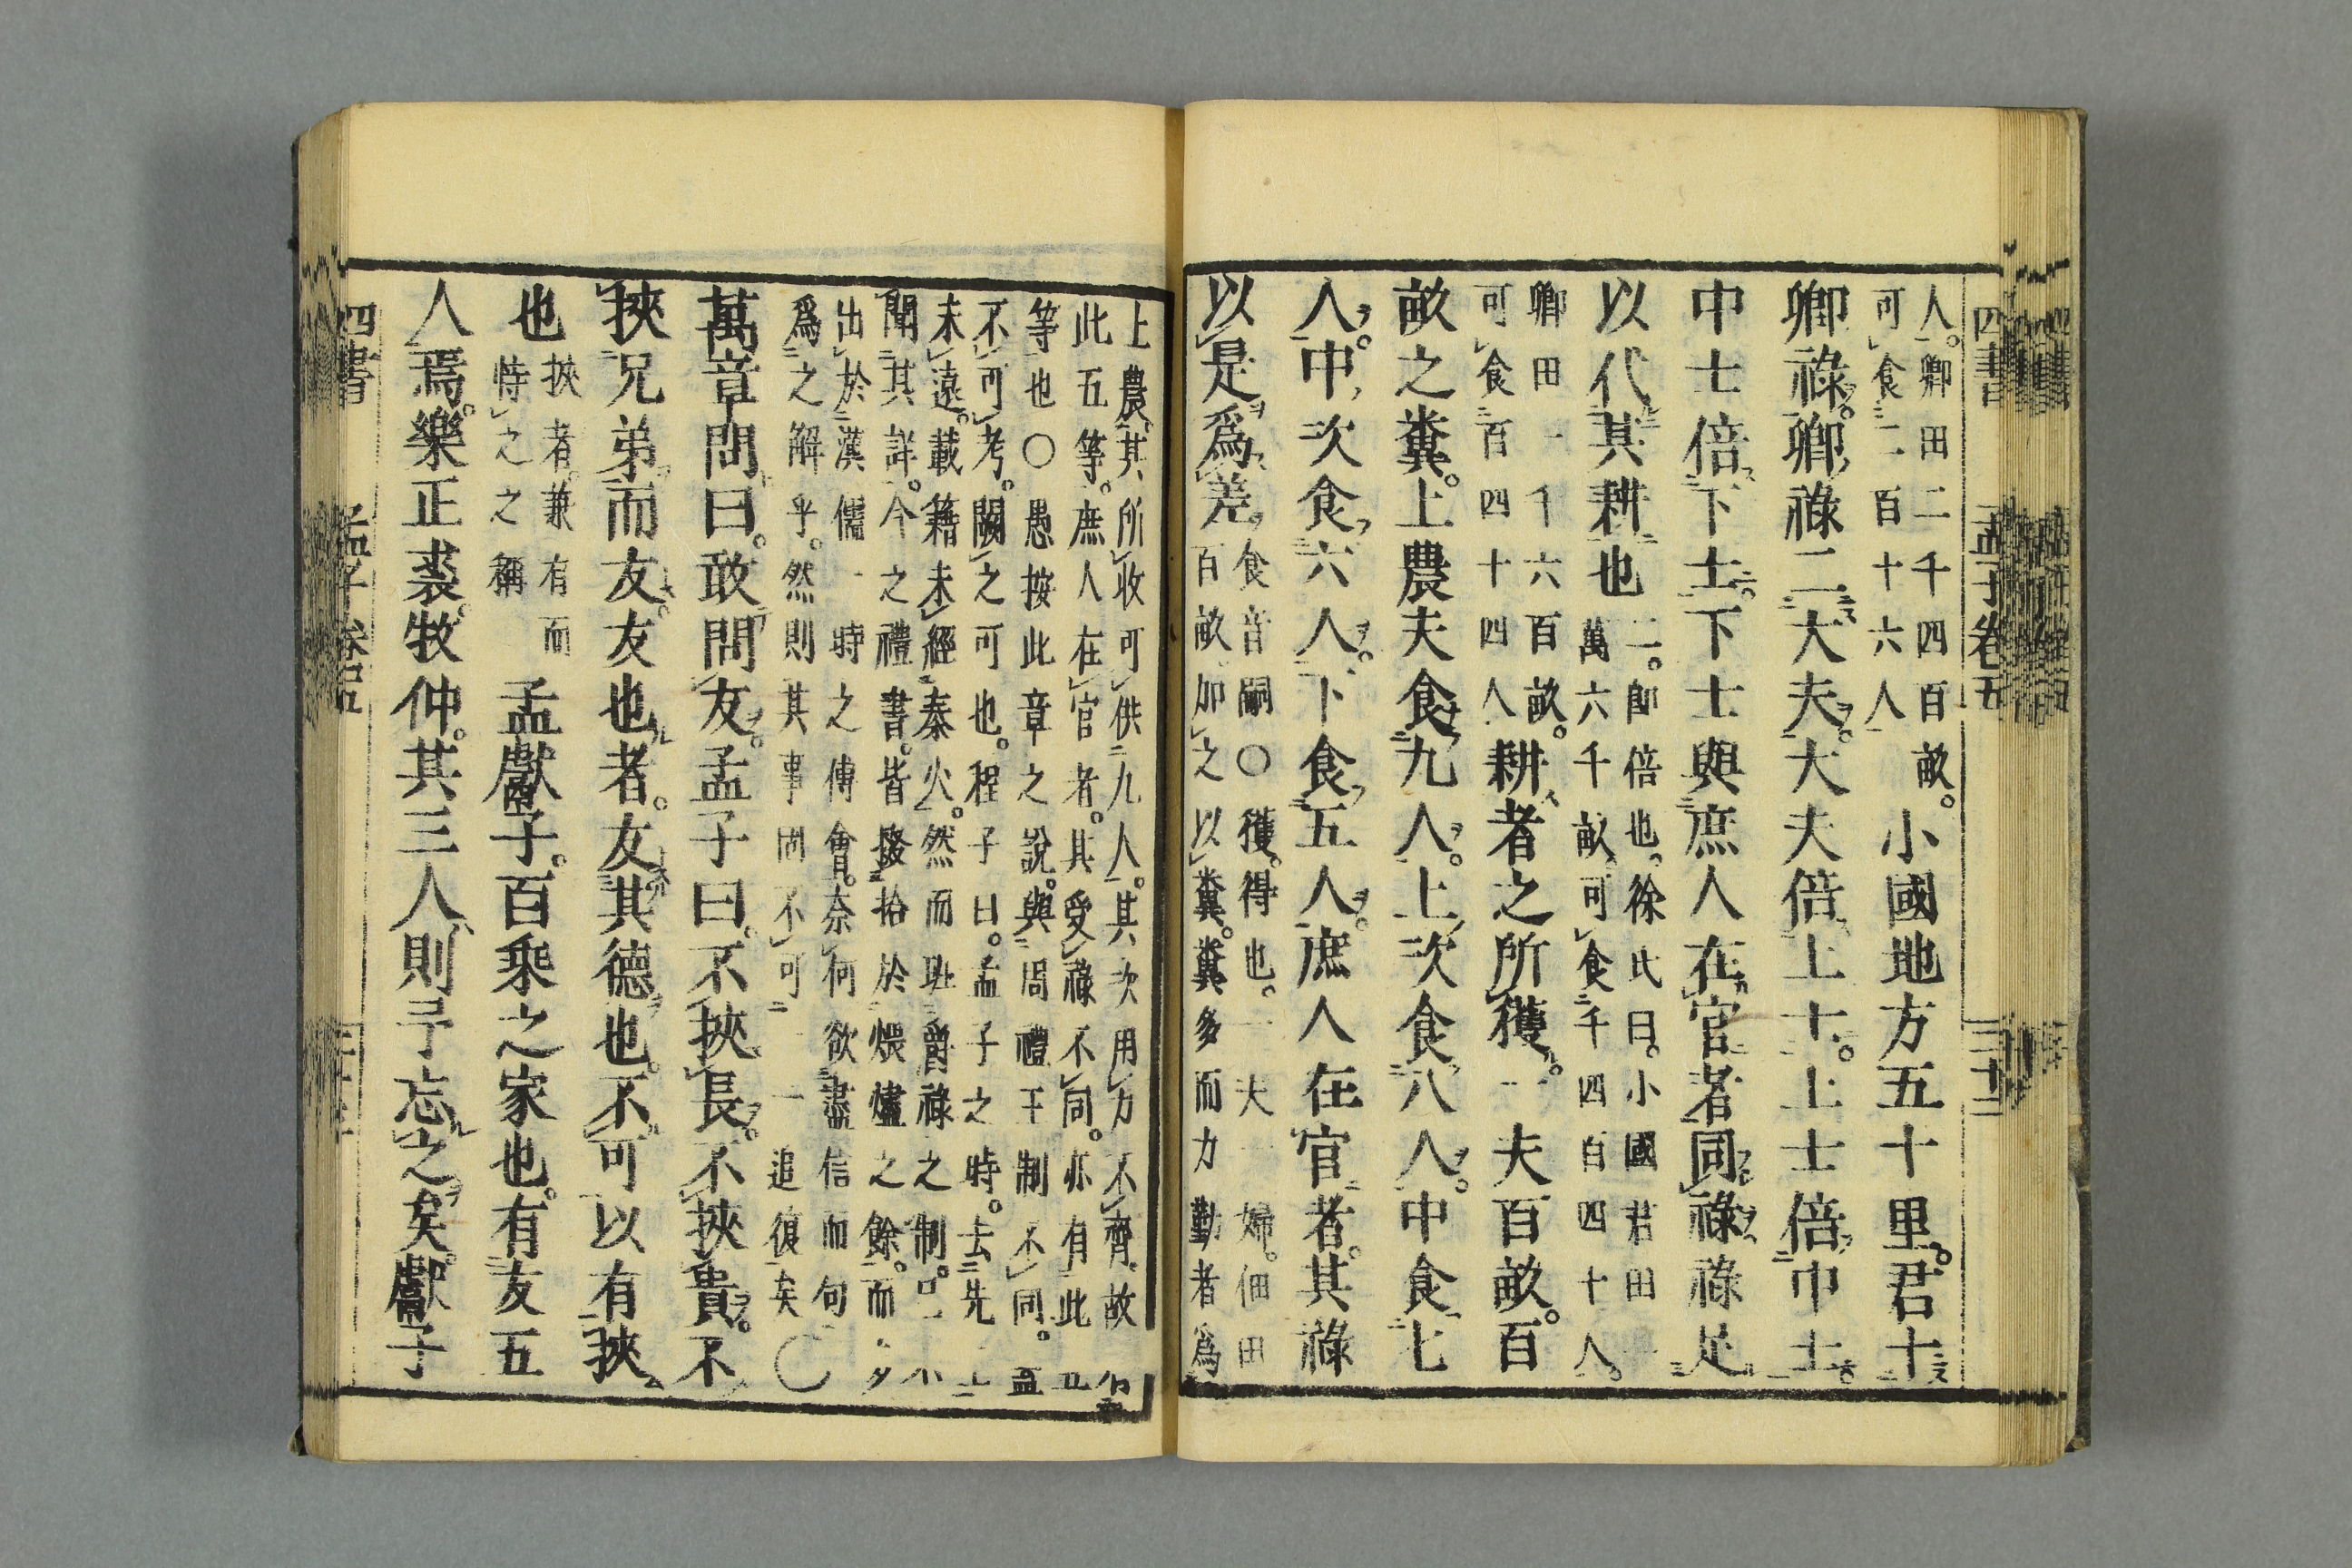 四書 孟子卷五 三十二
人。卿田二千四百畝。
可食二百十六人
小國地方五十里。君十
卿祿。卿祿二大夫。大夫倍上士。上士倍中士。
中士倍下士。下士與庶人在官者同祿。祿足
以代其耕也
二。卽倍也。徐氏曰。小國君田一
萬六千畝。可食千四百四十人。
卿田一千六百畝。
可食百四十四人
耕者之所獲。一夫百畝。百
畝之糞。上農夫食九人。上次食八人。中食七
人。中次食六人。下食五人。庶人在官者。其祿
以是爲差。
食音嗣〇獲。得也。一夫一婦。佃田
百畝。加之以糞。糞多而力勤者爲
上農。其所收可供九人。其次用力不齊。故
此五等。庶人在官者。其受祿不同。亦有此五
等也〇愚按此章之說。與周禮王制不同。蓋
不可考。闕之可也。程子曰。孟子之時。去先
未遠。載籍未經秦火。然而班爵祿之制。
聞其詳。今之禮書。皆掇拾於煨燼之餘。而多
出於漢儒一時之傅會。奈何欲盡信而句
爲之解乎。然則其事固不可一一追復矣〇
萬章問曰。敢問友。孟子曰。不挾長。不挾貴。不
挾兄弟而友。友也者。友其德也。不可以有挾
也
挾者。兼有而
恃之之稱
孟獻子。百乘之家也。有友五
人焉。樂正裘。牧仲。其三人則予忘之矣。獻子
四書 孟子卷五